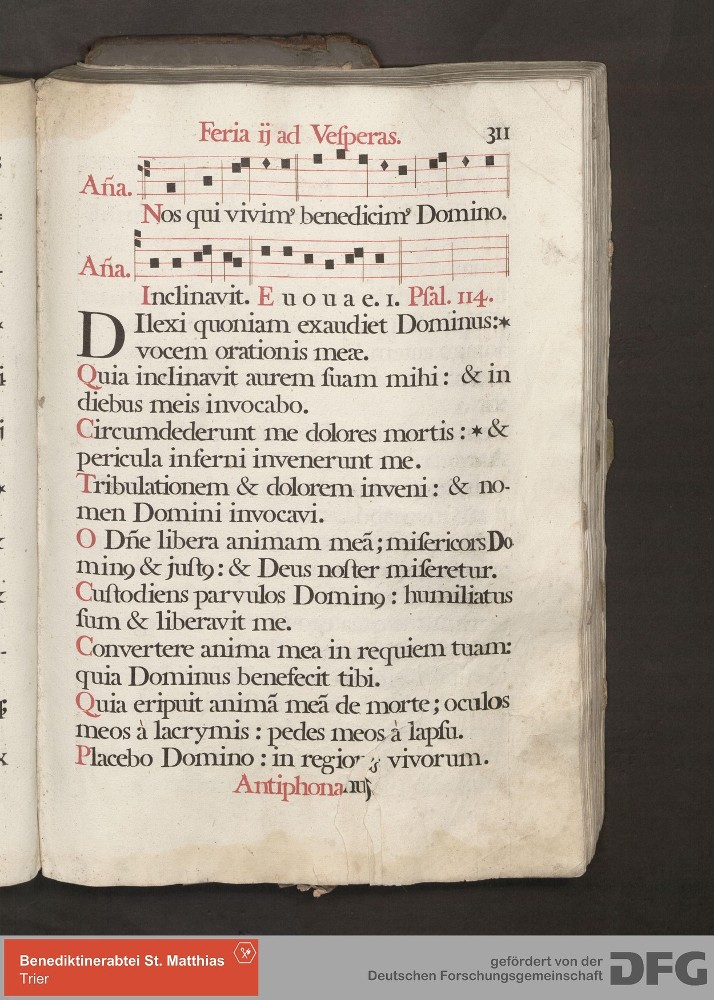 Feria ij ad Veſperas. 311
Aña.
Nos qui vivimꝰ benedicimꝰ Domino.
Aña.
Inclinavit. E u o u a e. 1. Pſal. 114.
DIlexi quoniam exaudiet Dominus:*
vocem orationis meæ.
Quia inclinavit aurem ſuam mihi: & in
diebus meis invocabo.
Circumdederunt me dolores mortis:* &
pericula inferni invenerunt me.
Tribulationem & dolorem inveni: & no-
men Domini invocavi.
O Dñe libera animam meã; miſericors Do
minꝯ & juſtꝯ: & Deus noſter miſeretur.
Cuſtodiens parvulos Dominꝯ: humiliatus
ſum & liberavit me.
Convertere anima mea in requiem tuam:
quia Dominus benefecit tibi.
Quia eripuit animã meã de morte; oculos
meos à lacrymis: pedes meos à lapſu.
Placebo Domino: in vivorum.
Antiphona
Benediktinerabtei St. Matthias
Trier
gefördert von der
Deutschen Forschungsgemeinschaft DFG